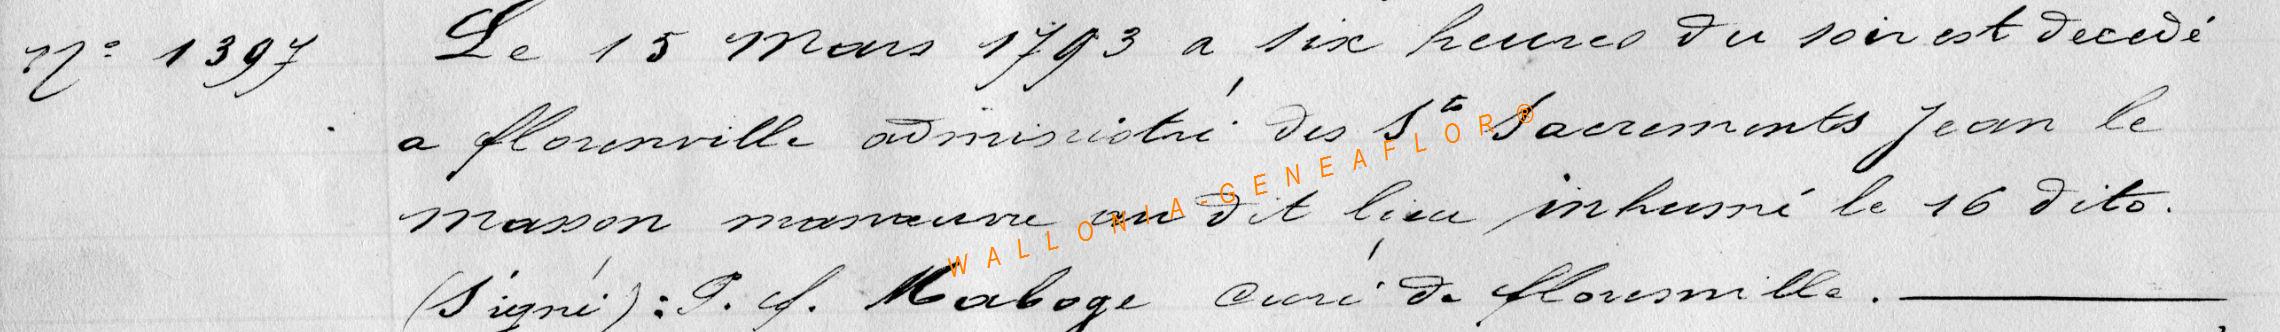 N° 1397 Le 15 Mars 1793 a six heures du soir est decedé
a florenville administré des Sts Sacrements Jean le
masson manœuvre au dit lieu inhumé le 16 dito.
(Signé): P. f. Maboge Curé de florenville.
WALLONIA-GENEAFLOR®